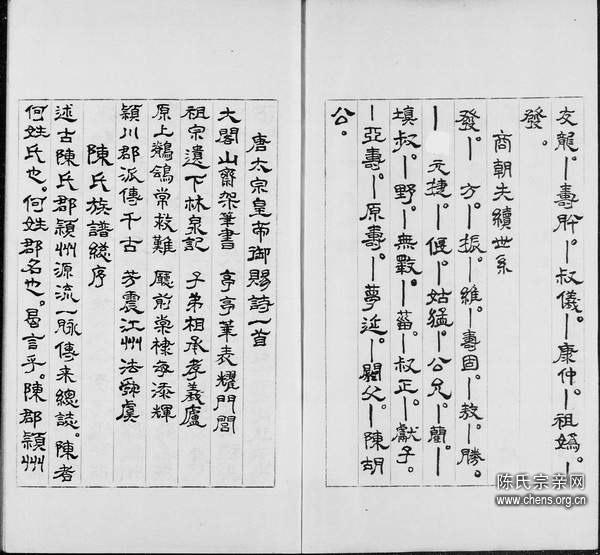 友龍｜壽黔｜叔儀。｜康仲｜祖媯。｜
發。
商朝夫續世系
發。｜方。｜振。｜維。｜壽固。｜敖。｜勝。
｜元捷。｜偃。｜姑猛。｜公兄。｜簡。｜
填叔。｜野。｜無斁。｜菑。｜叔正。｜獻子。
｜亞壽。｜原壽。｜夢延。｜閼父。｜陳胡
公。
唐太宗皇帝御賜詩一首
大閣山齋架筆書 亭亭華表耀門閭
祖宗遺下林泉記 子弟相承孝義廬
原上鶺鴒常救難 廳前棠棣每添輝
潁川郡派傳千古 芳震江州法舜虞
陳氏族譜總序
述古陳氏郡潁州源流一脉傳来總誌。陳者
何姓氏也。何姓郡名也。曷言乎。陳郡潁州
陈氏宗亲网
www.chens.org.cn